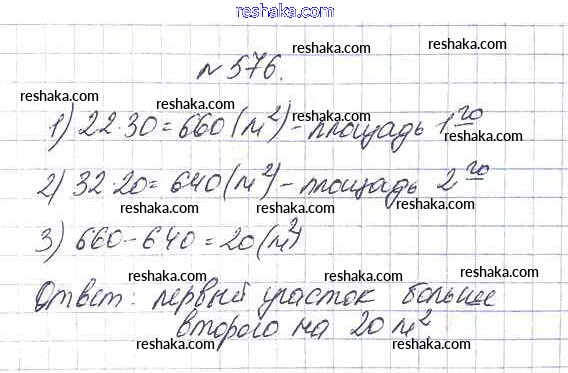 reshaka.com
reshaka.com reshaka.com
№576.
reshaka.com reshaka.com
1) 22·30=660(м²)-площадь 1го
reshaka.com reshaka.com
reshaka.com
2) 32·20=640(м²)-площадь 2го
reshaka.com reshaka.com
3) 660-640=20(м²)
reshaka.com reshaka.com
Ответ: первый участок больше
reshaka.com
второго на 20 м².
reshaka.com reshaka.com